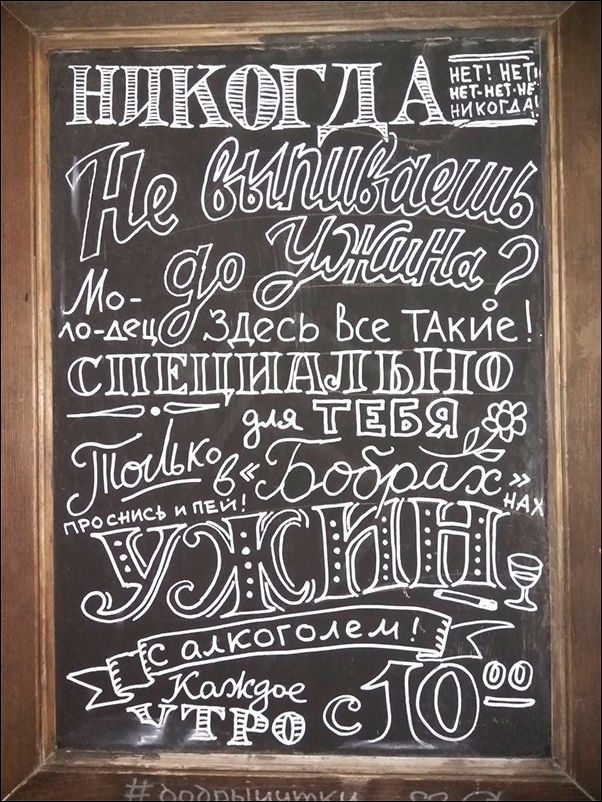 НИКОГДА
НЕТ! НЕТ!
НЕТ-НЕТ-НЕ
НИКОГДА!
Не выпиваешь
до Ужина?
Мо-
ло-дец
Здесь все такие!
СПЕЦИАЛЬНО
для ТЕБЯ
Только в «Бобрах»
НАХ
ПРОСНИСЬ И ПЕЙ!
УЖИН
с алкоголем!
Каждое
УТРО с 10 00